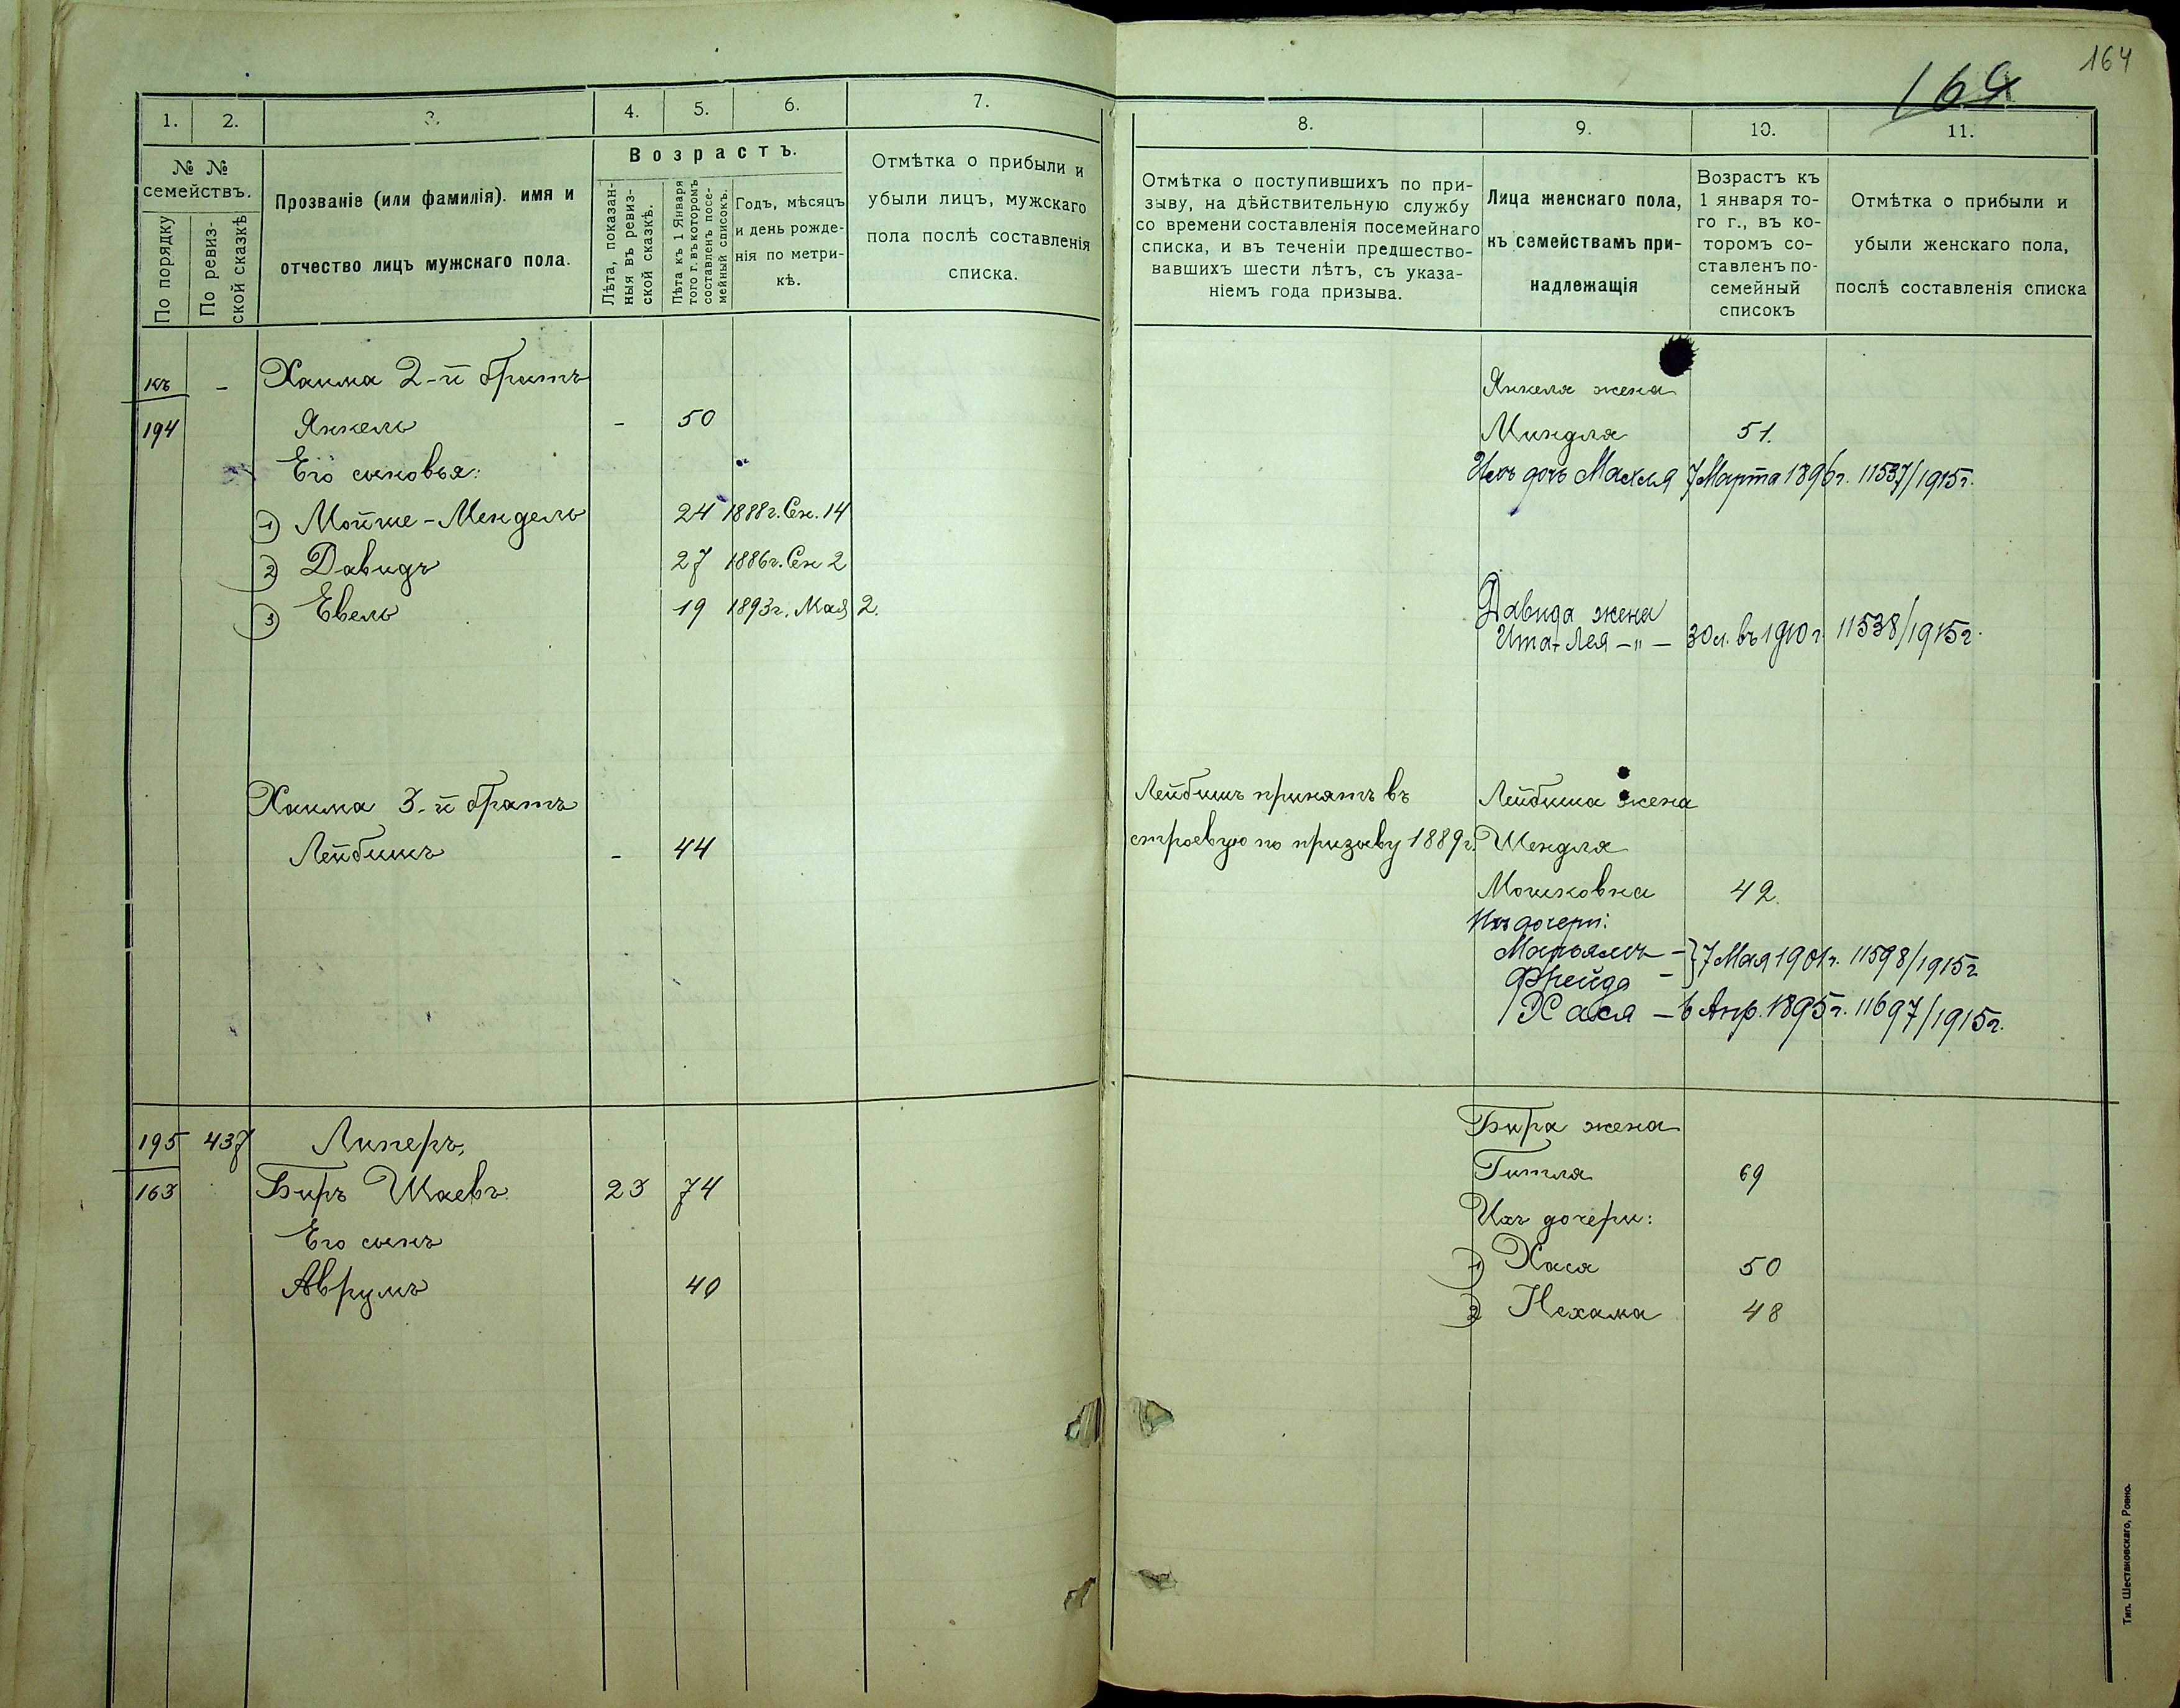 164
164
1. 2. 3. 4. 5. 6. 7.
№ №
семействъ.
По порядку
По ревиз-
ской сказкѣ
Прозваніе (или фамилія). имя и
отчество лицъ мужскаго пола.
Возрастъ.
Лѣта, показан-
ныя въ ревиз-
ской сказкѣ.
Лѣта къ 1 Января
того г. въ которомъ
составленъ посе-
мейный списокъ.
Годъ, мѣсяцъ
и день рожде-
нія по метри-
кѣ.
Отмѣтка о прибыли и
убыли лицъ, мужскаго
пола послѣ составленія
списка.
къ - Хаима 2-й братъ
194 Янкель - 50
Его сыновья:
1) Мойше-Мендель 24 1888г. Сен. 14
2) Давидъ 27 1886г. Сен 2
3) Евель 19 1893г. Мая 2.
Хаима 3-й братъ
Лейбишъ - 44
195 437 Липеръ,
163 Биръ Шаевъ 23 74
Его сынъ
Аврумъ 40
8. 9. 10. 11.
Отмѣтка о поступившихъ по при-
зыву, на дѣйствительную службу
со времени составленія посемейнаго
списка, и въ теченіи предшество-
вавшихъ шести лѣтъ, съ указа-
ніемъ года призыва.
Лица женскаго пола,
къ семействамъ при-
надлежащія
Возрастъ къ
1 января то-
го г., въ ко-
торомъ со-
ставленъ по-
семейный
списокъ
Отмѣтка о прибыли и
убыли женскаго пола,
послѣ составленія списка
Янкеля жена
Миндля 51.
Ихъ дочь Махля 7 Марта 1896г. 11537/1915г.
Давида жена
Ита-Лея -"- 30 л. въ 1910 г. 11538/1915г.
Лейбишъ принятъ въ Лейбиша жена
строевую по призыву 1889г. Шендля
Мошковна 42.
Ихъ дочери:
Марьямъ - } 7 Мая 1901г. 11598/1915г
Фрейда -
Хася - 6 Апр. 1895г. 11697/1915г.
Бира жена
Гитля 69
Ихъ дочери:
1) Хася 50
2) Нехама 48
Тип. Шестаковскаго, Ровно.